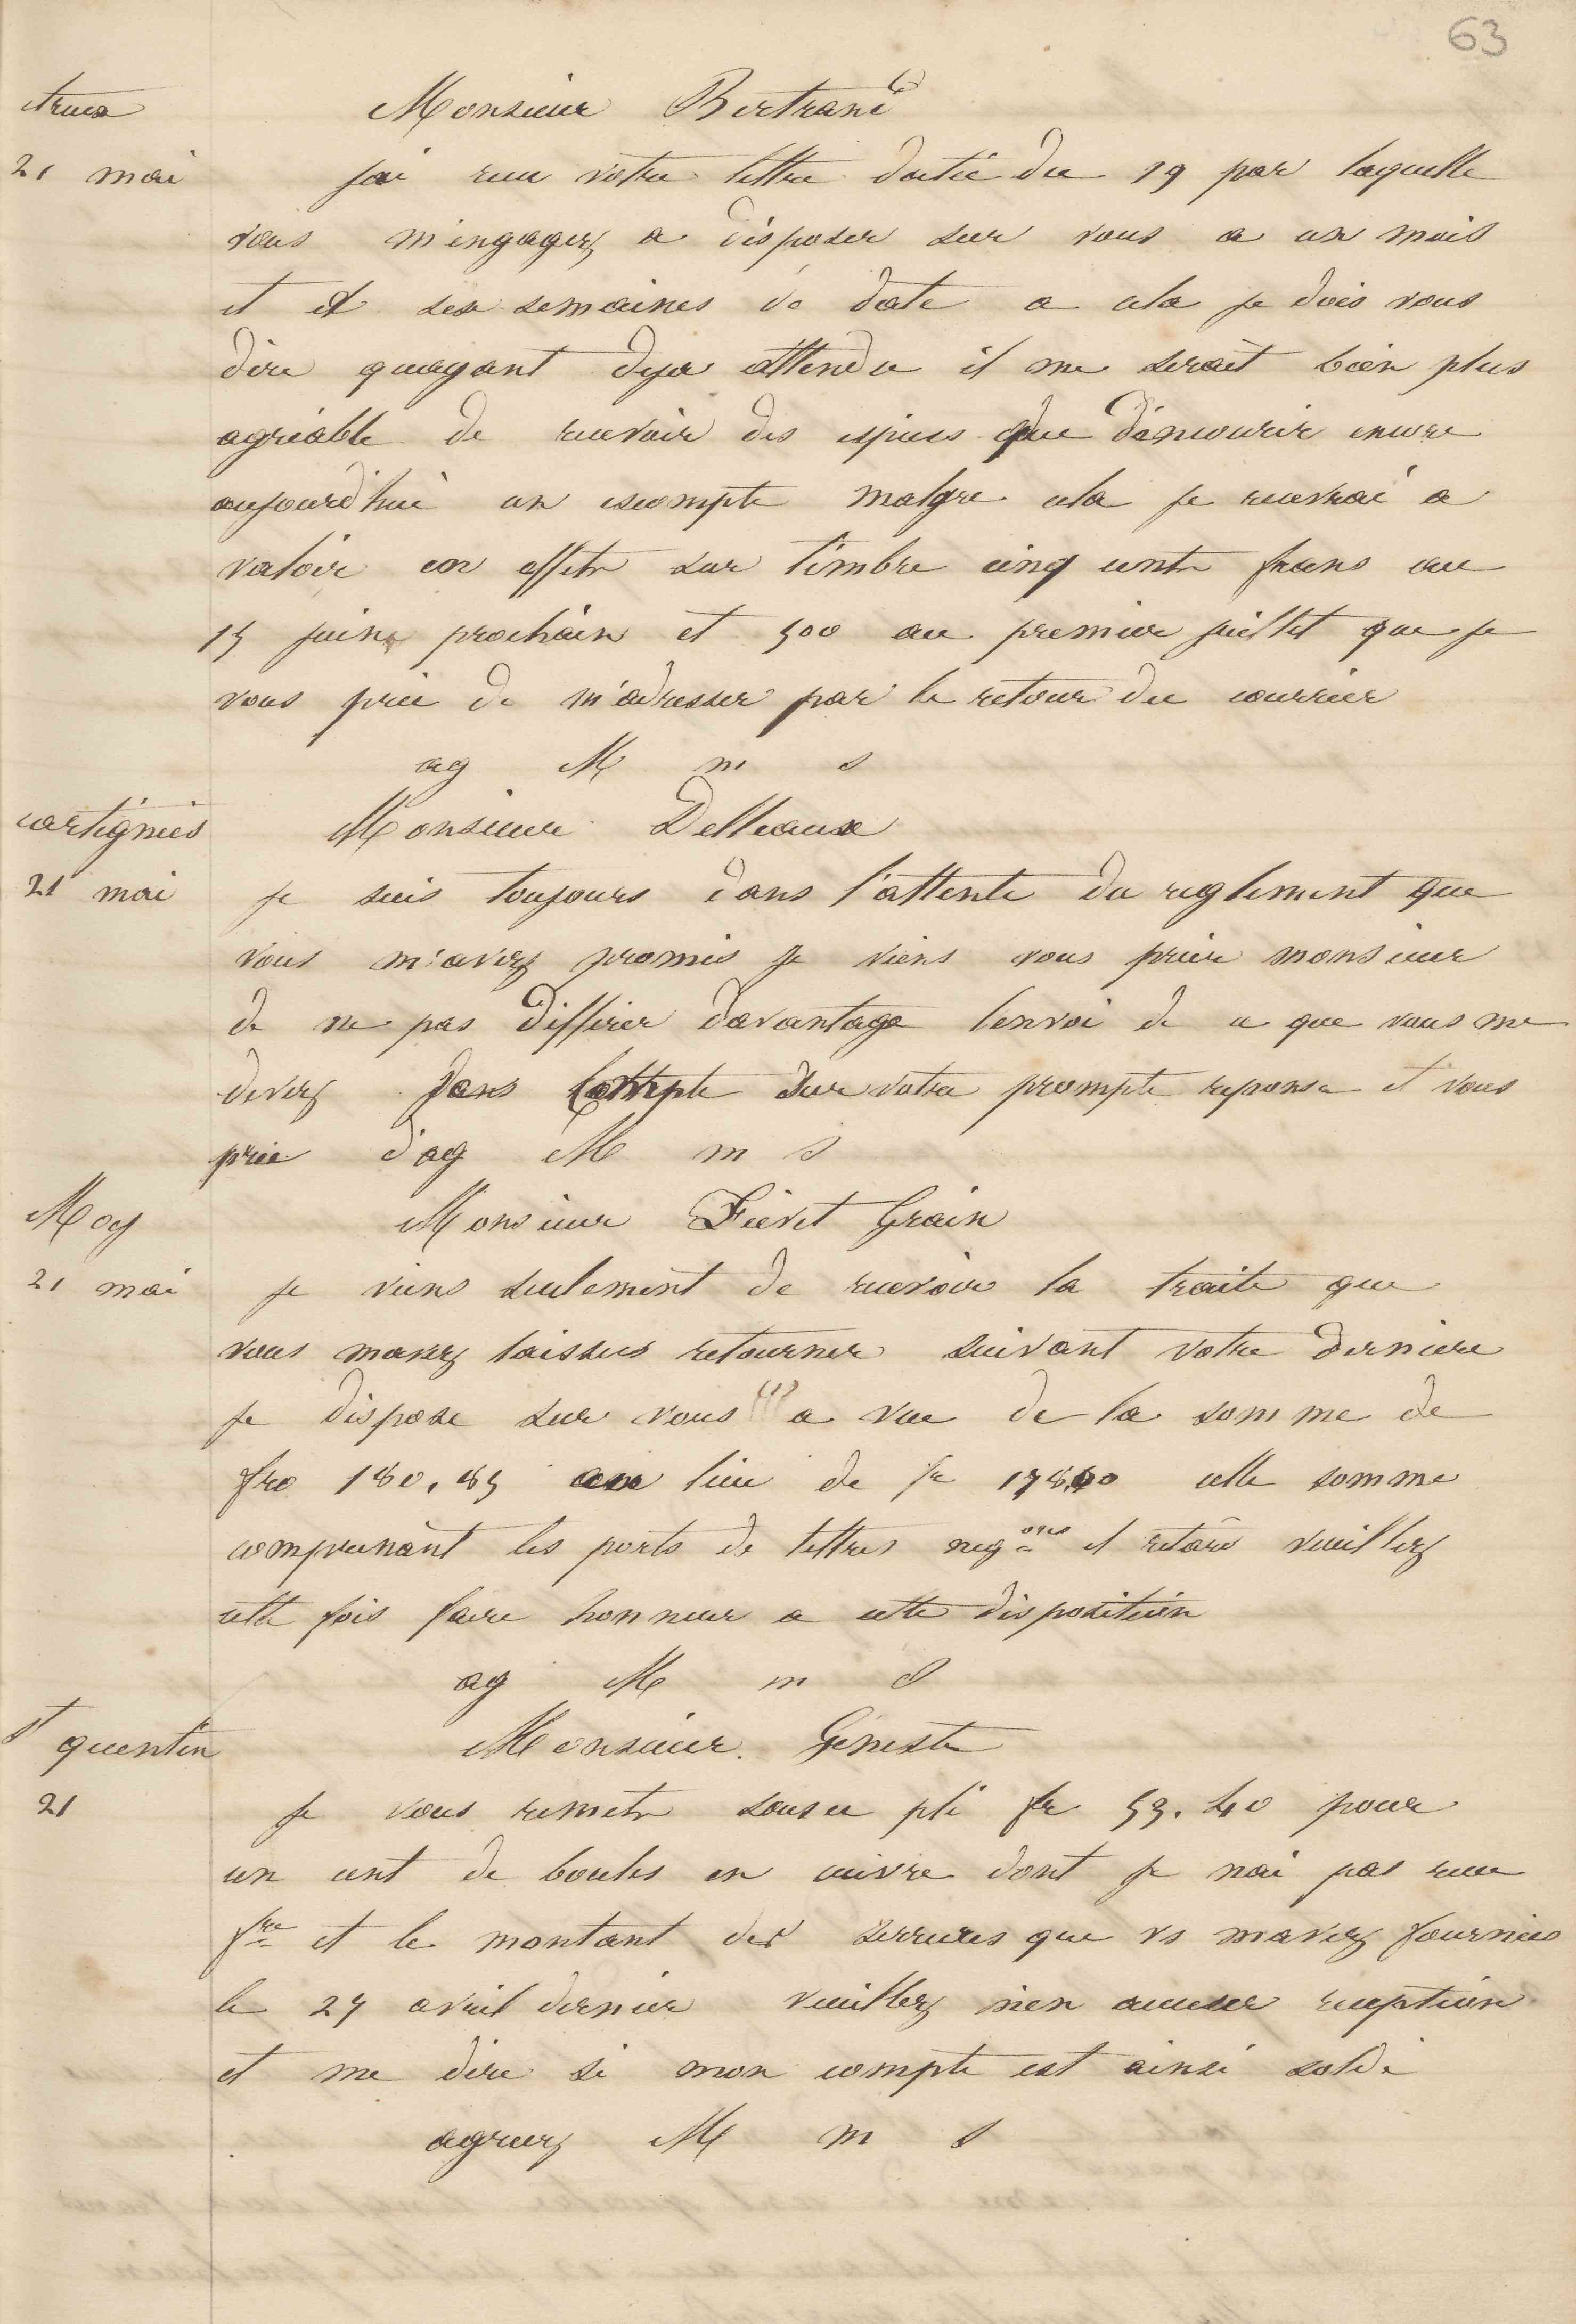 63
etrux
Monsieur Bertrand
21 mai
jai recu votre lettre datée du 19 par laquelle
vous m'engagez a disposer sur vous a un mois
et et six semaines de date a cela je dois vous
dire quayant deja attendu il me serait bien plus
agréable de recevoir des espèces que d'encourir encore
aujourd'hui un escompte malgre cela je recevrai a
valoir en effets sur timbre cinq cents francs au
15 juin prochain et 500 au premier juillet que je
vous prie de m'adresser par le retour du courrier
ag M m s
cartignies
Monsieur Delleaux
21 mai
je suis toujours dans l'attente du reglement que
vous m'avez promis je viens vous prier monsieur
de ne pas differer davantage lenvoi de ce que vous me
devez Jans Compte sur votre prompte reponse et vous
prie d'ag M m s
Moy
Monsieur Fievet Grain
21 mai
je viens seulement de recevoir la traite que
vous mavez laissée retourner suivant votre derniere
je dispose sur vous a vue de la somme de
frs 180.85 au lieu de fr 178.50 cette somme
comprenant les ports de lettres neg.ons et retard veuillez
cette fois faire honneur a cette disposition
ag M m s
St quentin
Monsieur Geneste
21
je vous remets sous ce pli fr 59.40 pour
un cent de boules en cuivre dont je nai pas recu
fre et le montant des serrures que vs mavez fournies
le 27 avril dernier veuillez m'en accuser reception
et me dire si mon compte est ainsi soldé
agreez M m s